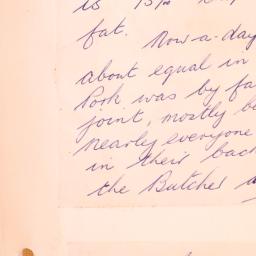 is 15%
fat. Now-a-day
about equal in
Pork was by fa
joint, mostly be
nearly everyone
in their bac
the Butcher a